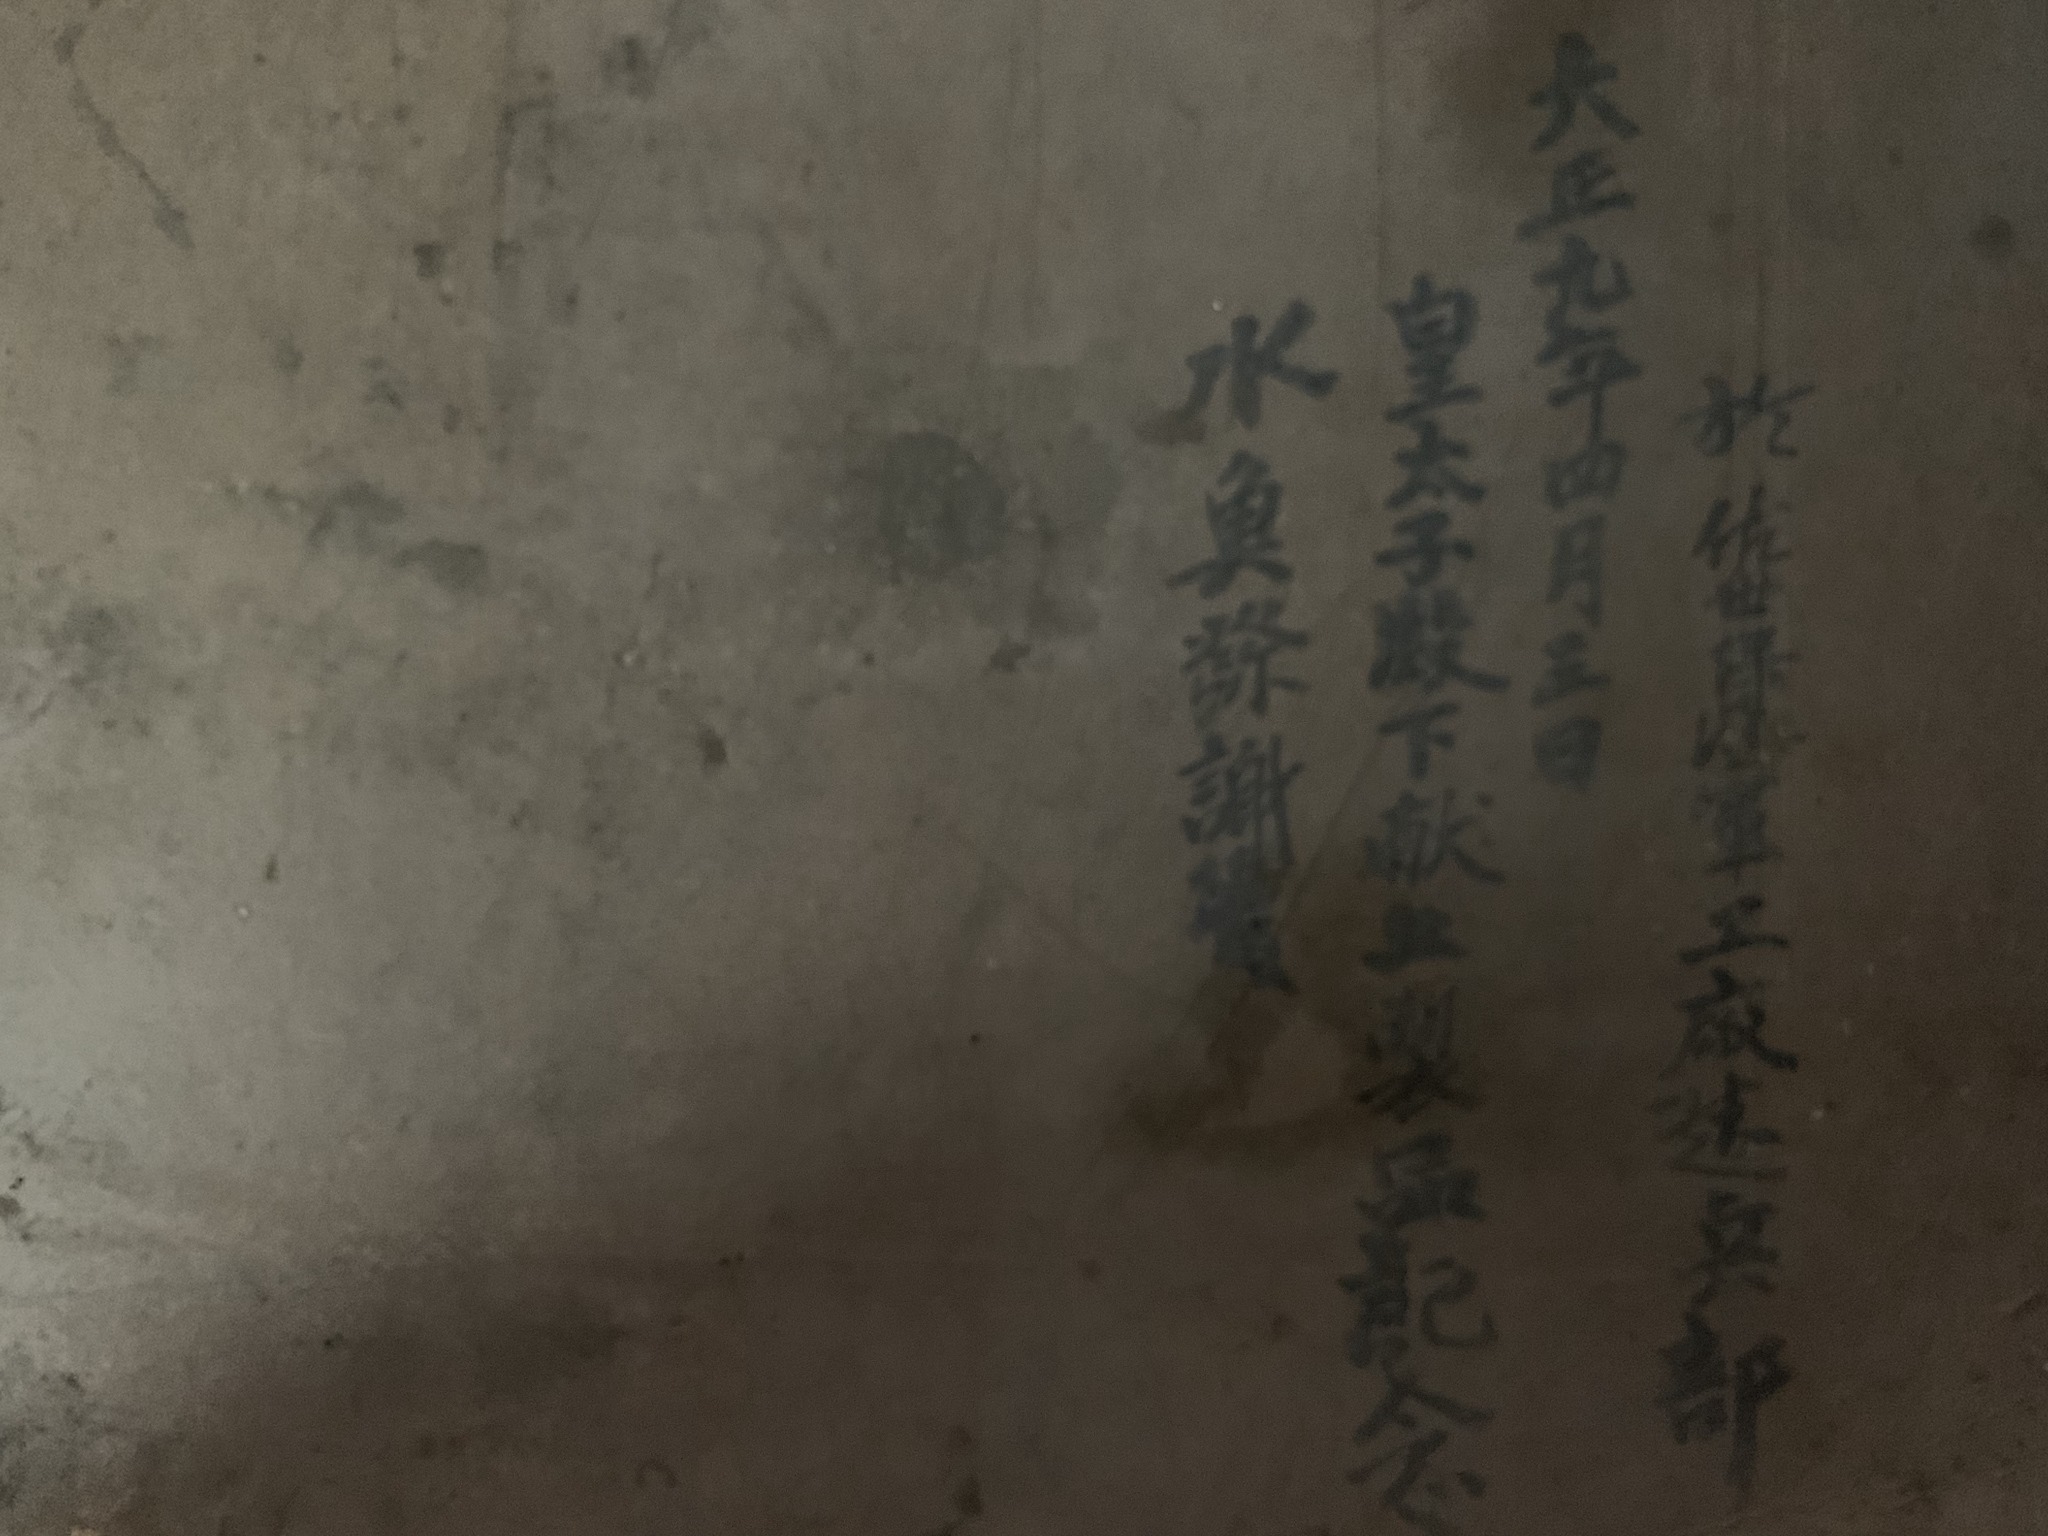 於佐世保海軍工廠造兵部
大正九年四月三日
皇太子殿下献上製品記念
水魚發謝機